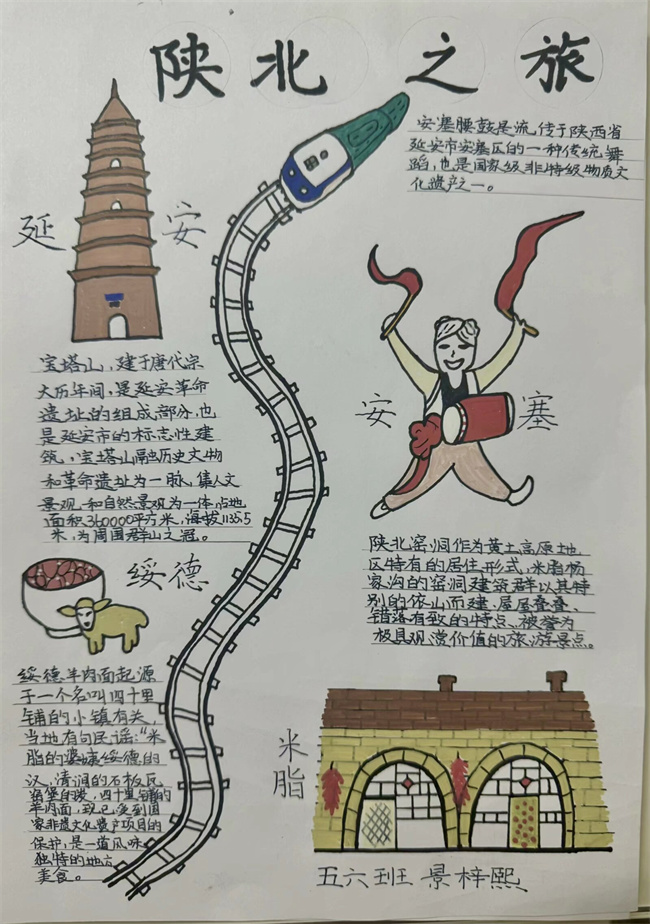 陕北之旅
安塞腰鼓是流传于陕西省
延安市安塞区的一种传统舞
蹈，也是国家级非特级物质文
化遗产之一。
延安
宝塔山，建于唐代宗
大历年间，是延安革命
遗址的组成部分，也
是延安市的标志性建
筑，宝塔山融历史文物
和革命遗址为一脉，集人文
景观和自然景观为一体，占地
面积360000平方米，海拔1135.5
米，为周围群山之冠。
安塞
陕北窑洞作为黄土高原地
区特有的居住形式，米脂杨
家沟的窑洞建筑群以其特
别的依山而建、层层叠叠、
错落有致的特点、被誉为
极具观赏价值的旅游景点。
绥德
绥德羊肉面起源
于一个名叫四十里
铺的小镇有关，
当地有句民谣：“米
脂的婆姨绥德的
汉，清涧的石板瓦
窑堡的炭，四十里铺的
羊肉面，现已受到国
家非遗文化遗产项目的
保护，是一道风味
独特的地方
美食。
米脂
五六班 景梓熙